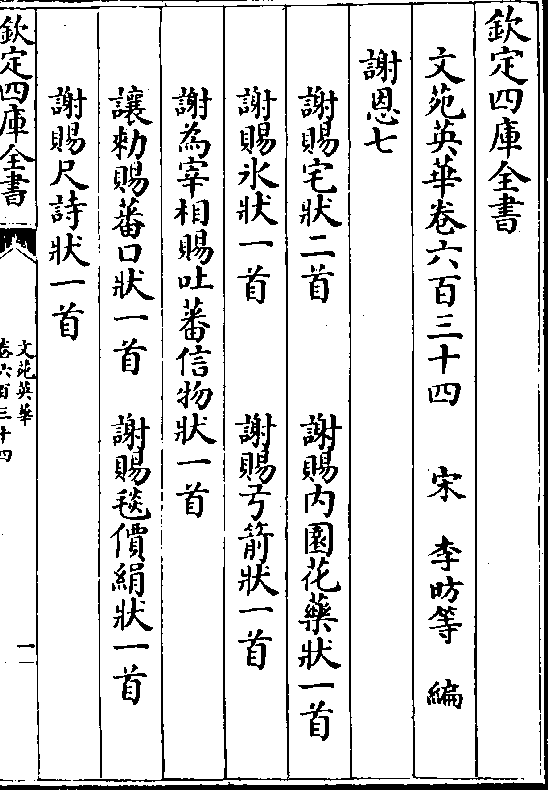 欽定四庫全書
文苑英華卷六百三十四　宋　李昉等　編
謝恩七
謝賜宅狀二首　謝賜内園花藥狀一首
謝賜氷狀一首　謝賜弓箭狀一首
謝為宰相賜吐蕃信物狀一首
讓勑賜蕃口狀一首　謝賜毯價絹狀一首
謝賜尺詩狀一首
欽定四庫全書
文苑英華
卷六百三十四
一